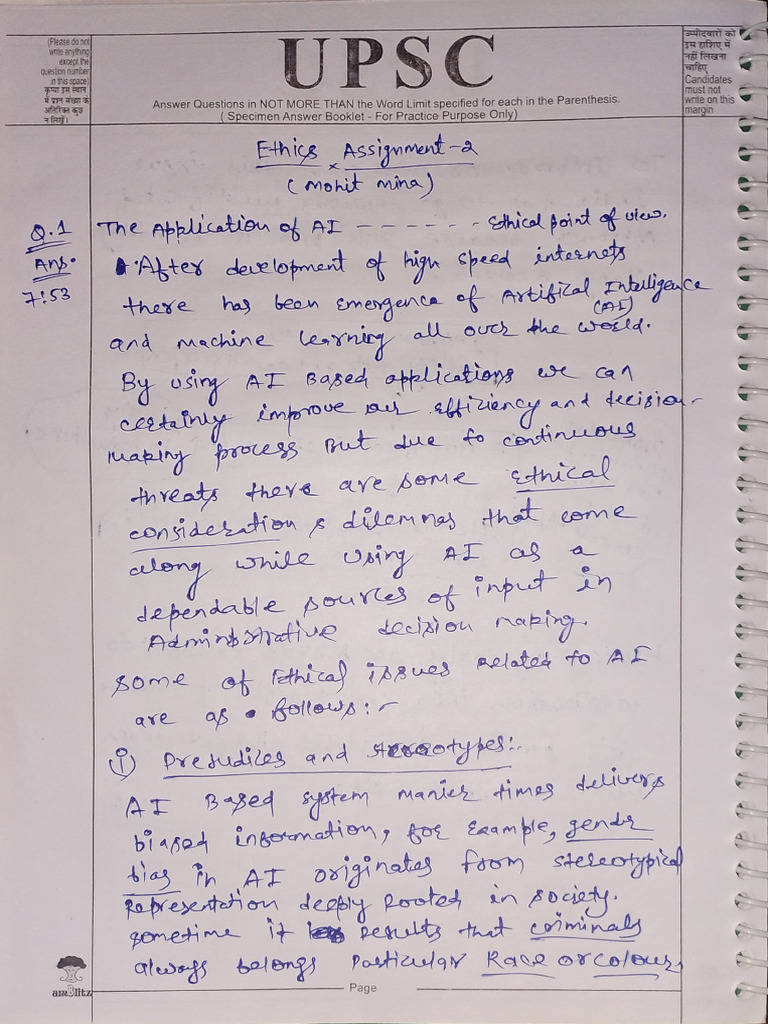 (Please do not
write anything
except the
question number
in this space)
कृपया इस स्थान
में प्रश्न संख्या के
अतिरिक्त कुछ
न लिखें।
UPSC
Answer Questions in NOT MORE THAN the Word Limit specified for each in the Parenthesis.
( Specimen Answer Booklet - For Practice Purpose Only)
उम्मीदवारों को
इस हाशिए में
नहीं लिखना
चाहिए
Candidates
must not
write on this
margin
Ethics x Assignment-2
(Mohit Mina)
Q.1 The Application of AI ------ Ethical point of view.
Ans. After development of high speed internets
7:53 there has been emergence of Artifical Intelligence
(AI)
and machine learning all over the world.
By using AI Based applications we can
certainly improve our efficiency and decision-
making process But due to continuous
threats there are some Ethical
consideration & dilemmas that come
along while using AI as a
dependable sources of input in
Administrative decision making.
some of Ethical issues related to AI
are as follows:-
(i) Prejudices and stereotypes:-
AI Based system manier times delivers
biased information, for example, gender
bias in AI originates from stereotypical
representation deeply rooted in society.
sometime it results that criminals
always belongs particular Race or colour,
am3litz
Page